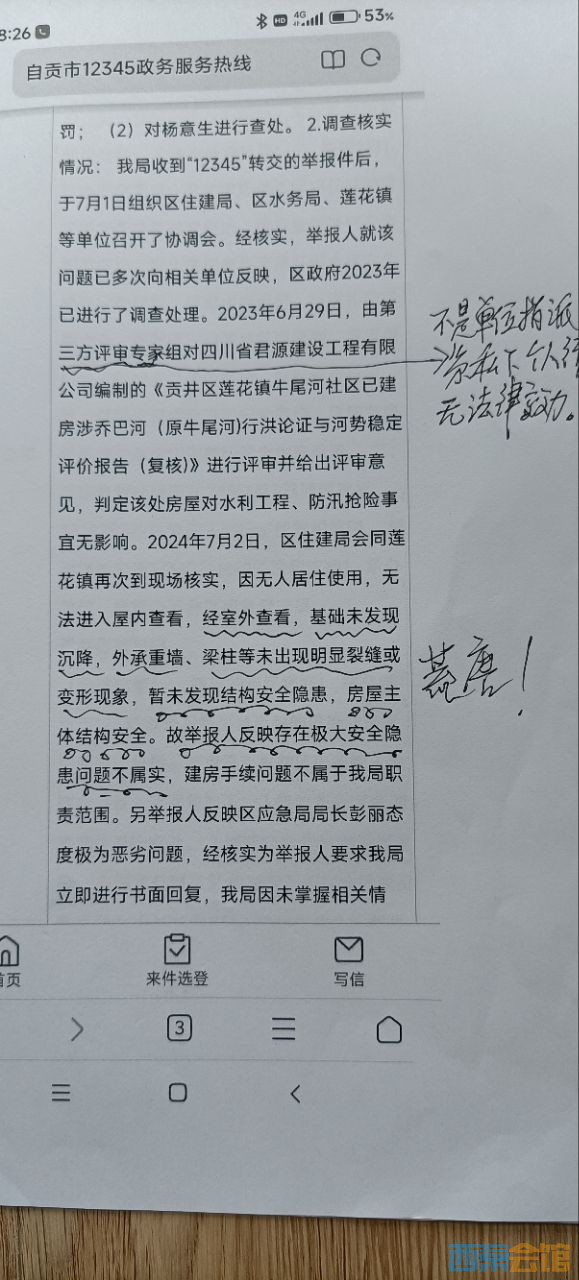 8:26
HD 4G 53%
自贡市12345政务服务热线
罚；（2）对杨意生进行查处。 2.调查核实
情况： 我局收到“12345”转交的举报件后，
于7月1日组织区住建局、区水务局、莲花镇
等单位召开了协调会。经核实，举报人就该
问题已多次向相关单位反映，区政府2023年
已进行了调查处理。2023年6月29日，由第
三方评审专家组对四川省君源建设工程有限
公司编制的《贡井区莲花镇牛尾河社区已建
房涉乔巴河（原牛尾河)行洪论证与河势稳定
评价报告（复核)》进行评审并给出评审意
见，判定该处房屋对水利工程、防汛抢险事
宜无影响。2024年7月2日，区住建局会同莲
花镇再次到现场核实，因无人居住使用，无
法进入屋内查看，经室外查看，基础未发现
沉降，外承重墙、梁柱等未出现明显裂缝或
变形现象，暂未发现结构安全隐患，房屋主
体结构安全。故举报人反映存在极大安全隐
患问题不属实，建房手续问题不属于我局职
责范围。另举报人反映区应急局局长彭丽态
度极为恶劣问题，经核实为举报人要求我局
立即进行书面回复，我局因未掌握相关情
不是单位指派
私下个人
无法律效力。
荒唐！
首页
来件选登
写信
3
西秦会馆